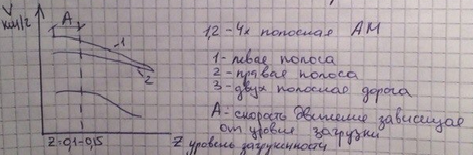 V
км/г
A
1
2
Z = 0,1-0,15
Z уровень загруженности
1,2 - 4х полосная АМ
1 - левая полоса
2 - правая полоса
3 - двух полосная дорога
А - скорость движения зависящае
от уровня загрузки